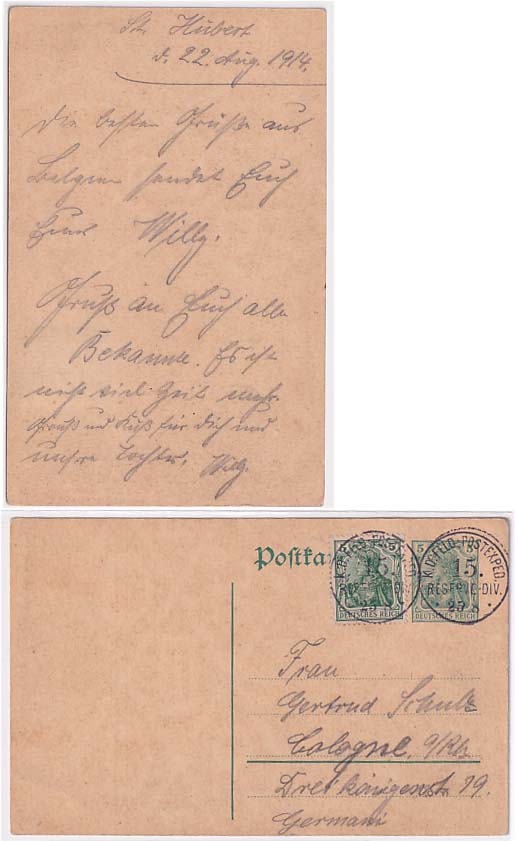 St. Hubert
d. 22. Aug. 1914.
Die besten Grüße aus
Belgien sendet Euch
Euer Willy.
Gruß an Euch alle
Bekannte. Es ist
nicht viel Zeit mehr.
Gruß und Kuß für Dich und
unsre Tochter. Willy.
Postka
K.D. FELD-POSTEXPED.
15.
RESERVE-DIV.
25 8
DEUTSCHES REICH
5 5
K.D. FELD-POSTEXPED.
15.
RESERVE-DIV.
25 8
DEUTSCHES REICH
Frau
Gertrud Schulz
Cologne, a/Rh
Dreikönigenstr 19.
Germani